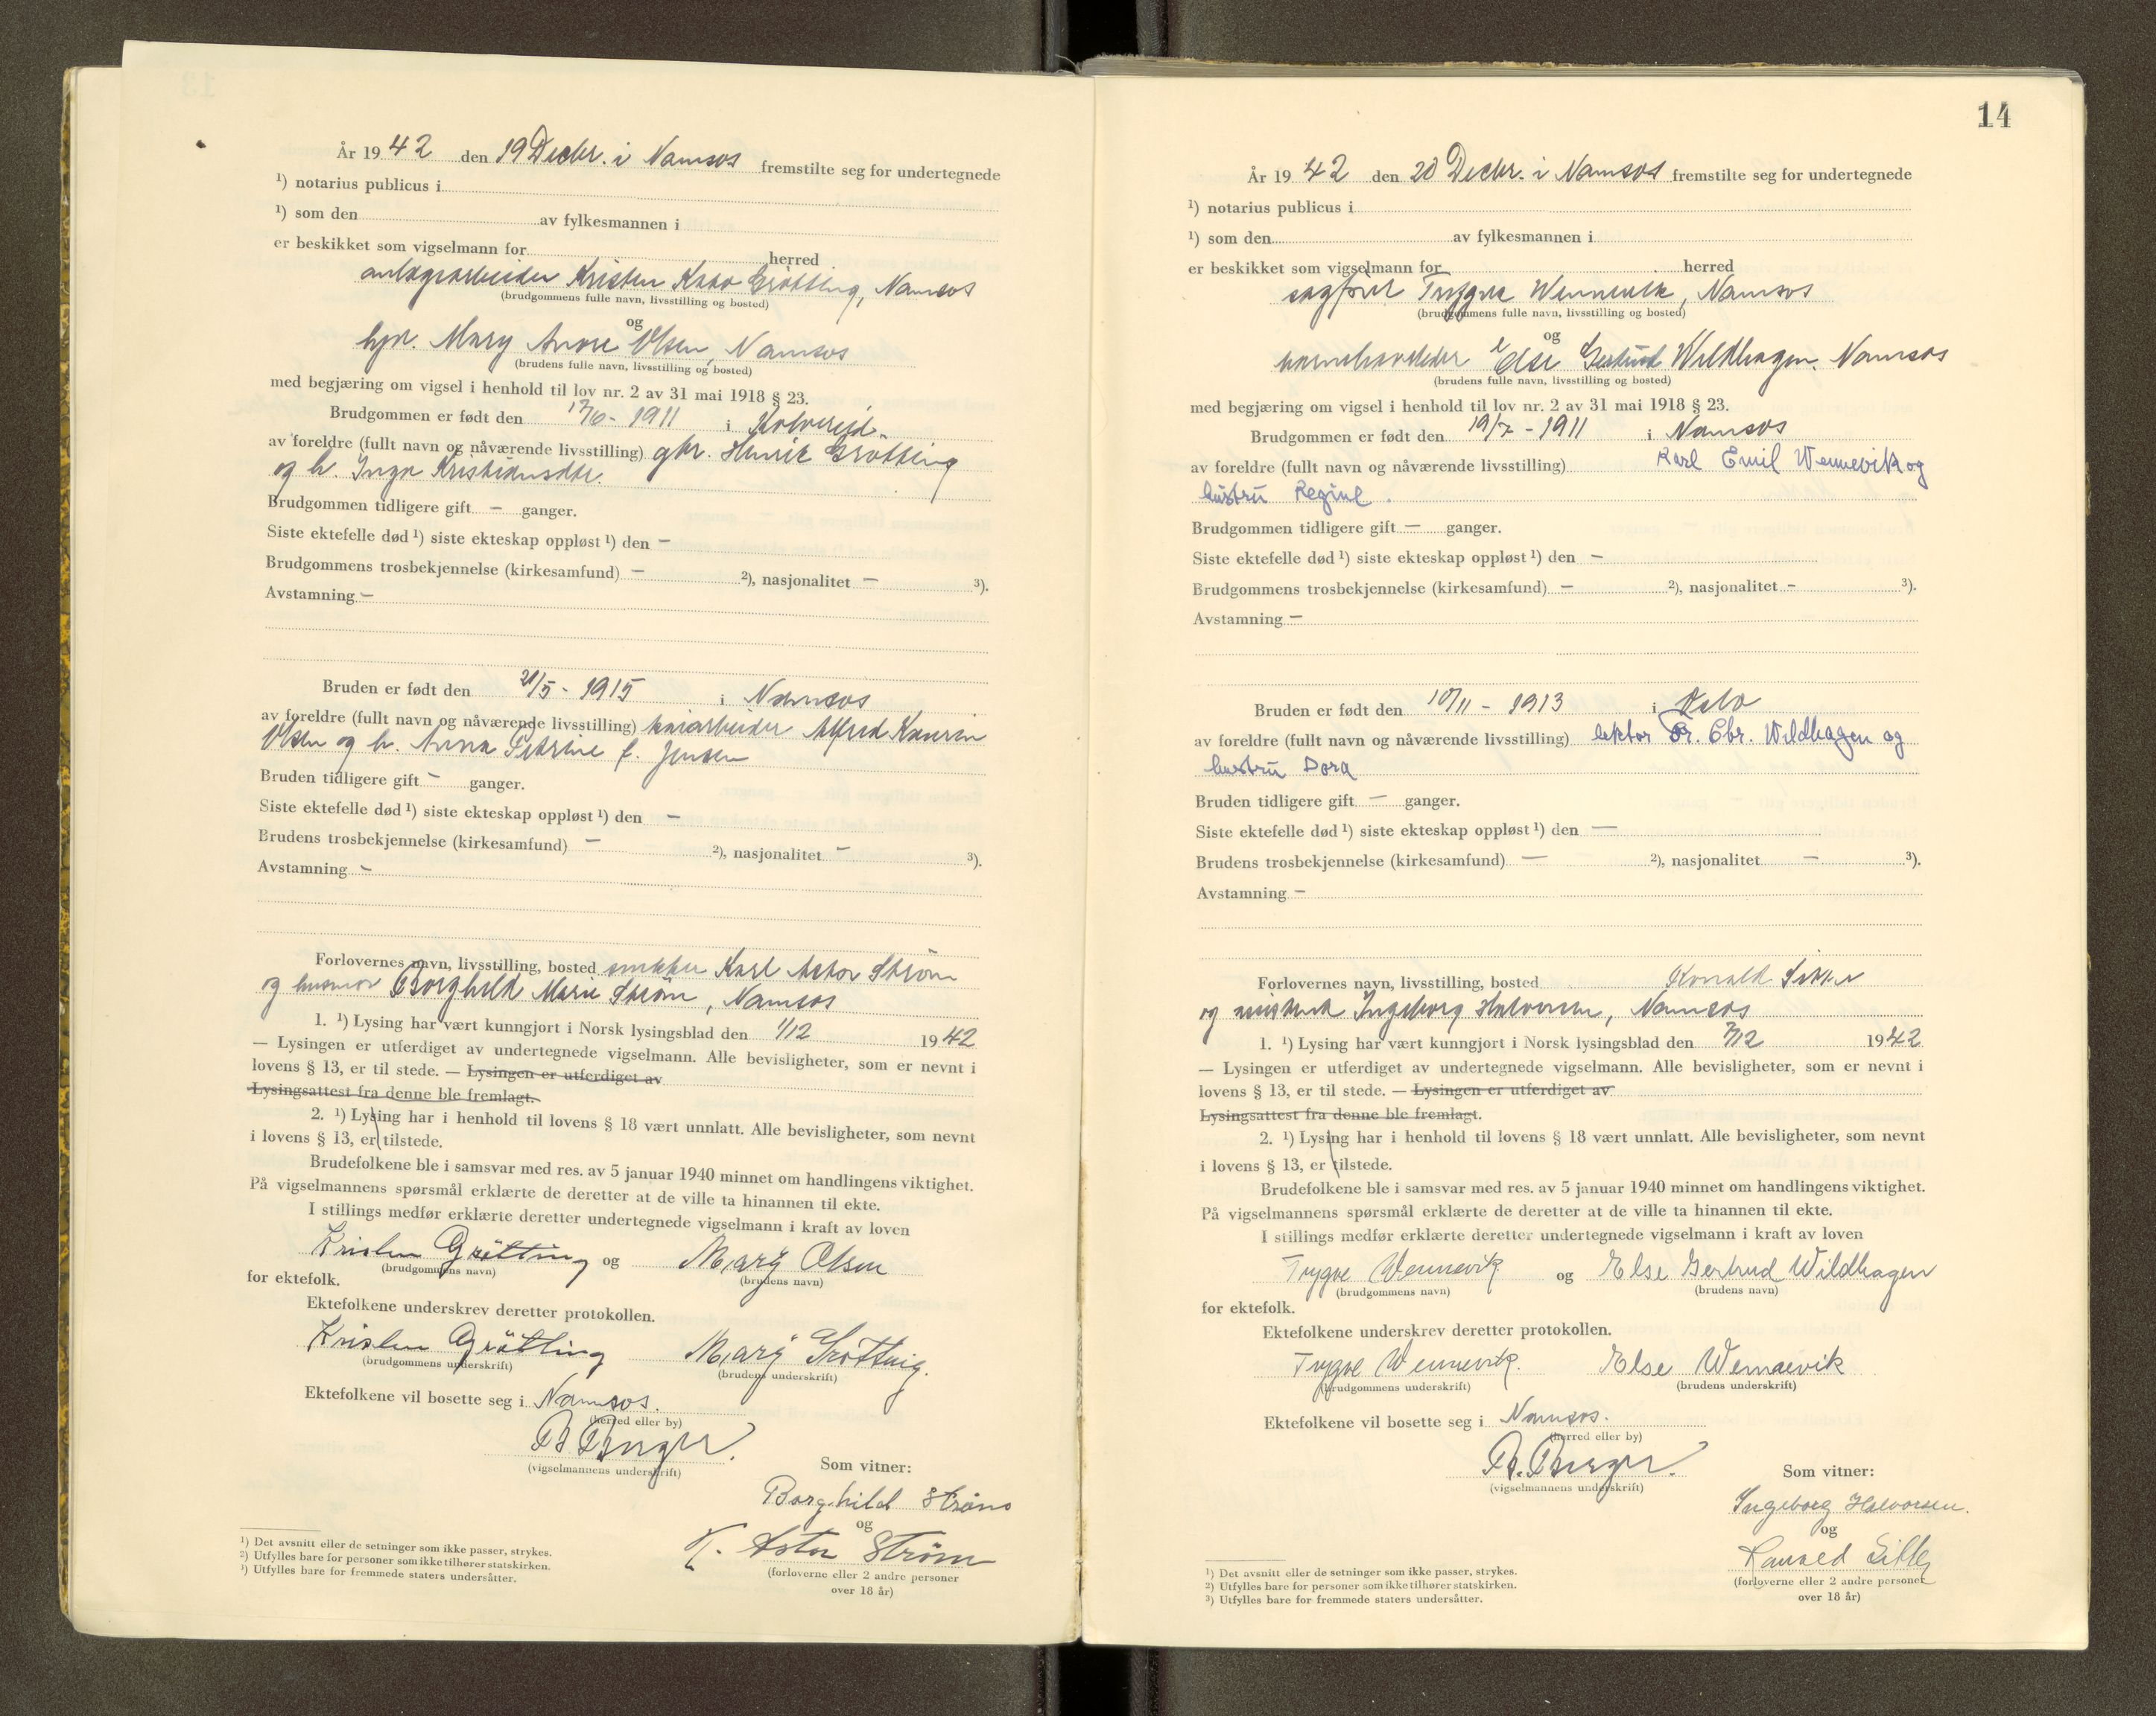 År 1942 den 19 Decbr. i Namsos fremstilte seg for undertegnede
¹) notarius publicus i
¹) som den av fylkesmannen i
er beskikket som vigselmann for herred
anlegsarbeider Kristen Grøtting, Namsos
(brudgommens fulle navn, livsstilling og bosted)
og
Mary Olsen, Namsos
(brudens fulle navn, livsstilling og bosted)
med begjæring om vigsel i henhold til lov nr. 2 av 31 mai 1918 § 23.
Brudgommen er født den 17/6 - 1911 i Kolvereid.
av foreldre (fullt navn og nåværende livsstilling) gbr. Henrik Grøtting
og h. Inga Kristiansdtr.
Brudgommen tidligere gift – ganger.
Siste ektefelle død ¹) siste ekteskap oppløst ¹) den –
Brudgommens trosbekjennelse (kirkesamfund) – ²), nasjonalitet – ³).
Avstamning –
Bruden er født den 21/5 - 1915 i Namsos
av foreldre (fullt navn og nåværende livsstilling) kaiarbeider Alfred
Olsen og h. Anna Petrine f. Jensen
Bruden tidligere gift – ganger.
Siste ektefelle død ¹) siste ekteskap oppløst ¹) den –
Brudens trosbekjennelse (kirkesamfund) – ²), nasjonalitet – ³).
Avstamning –
Forlovernes navn, livsstilling, bosted snekker Karl Astor Strøm
og husmor Borghild Marie Strøm, Namsos
1. ¹) Lysing har vært kunngjort i Norsk lysingsblad den 1/12 1942
— Lysingen er utferdiget av undertegnede vigselmann. Alle bevisligheter, som er nevnt i
lovens § 13, er til stede. — Lysingen er utferdiget av
Lysingsattest fra denne ble fremlagt.
2. ¹) Lysing har i henhold til lovens § 18 vært unnlatt. Alle bevisligheter, som nevnt
i lovens § 13, er tilstede.
Brudefolkene ble i samsvar med res. av 5 januar 1940 minnet om handlingens viktighet.
På vigselmannens spørsmål erklærte de deretter at de ville ta hinannen til ekte.
I stillings medfør erklærte deretter undertegnede vigselmann i kraft av loven
Kristen Grøtting og Mary Olsen
(brudgommens navn) (brudens navn)
for ektefolk.
Ektefolkene underskrev deretter protokollen.
Kristen Grøtting Mary Grøtting.
(brudgommens underskrift) (brudens underskrift)
Ektefolkene vil bosette seg i Namsos.
(herred eller by)
B. Berger.
(vigselmannens underskrift)
Som vitner:
Borghild Strøm
og
K. Astor Strøm
(forloverne eller 2 andre personer
over 18 år)
¹) Det avsnitt eller de setninger som ikke passer, strykes.
²) Utfylles bare for personer som ikke tilhører statskirken.
³) Utfylles bare for fremmede staters undersåtter.
14
År 1942 den 20 Decbr. i Namsos fremstilte seg for undertegnede
¹) notarius publicus i
¹) som den av fylkesmannen i
er beskikket som vigselmann for herred
sagfører Trygve Wennevik, Namsos
(brudgommens fulle navn, livsstilling og bosted)
og
Else Gertrud Wildhagen. Namsos
(brudens fulle navn, livsstilling og bosted)
med begjæring om vigsel i henhold til lov nr. 2 av 31 mai 1918 § 23.
Brudgommen er født den 19/7 - 1911 i Namsos
av foreldre (fullt navn og nåværende livsstilling) Karl Emil Wennevik og
hustru Regine.
Brudgommen tidligere gift – ganger.
Siste ektefelle død ¹) siste ekteskap oppløst ¹) den –
Brudgommens trosbekjennelse (kirkesamfund) – ²), nasjonalitet – ³).
Avstamning –
Bruden er født den 10/11 - 1913 i Oslo
av foreldre (fullt navn og nåværende livsstilling) lektor Dr. Chr. Wildhagen og
hustru Dora
Bruden tidligere gift – ganger.
Siste ektefelle død ¹) siste ekteskap oppløst ¹) den –
Brudens trosbekjennelse (kirkesamfund) – ²), nasjonalitet – ³).
Avstamning –
Forlovernes navn, livsstilling, bosted
og Ingeborg Halvorsen, Namsos
1. ¹) Lysing har vært kunngjort i Norsk lysingsblad den 7/12 1942
— Lysingen er utferdiget av undertegnede vigselmann. Alle bevisligheter, som er nevnt i
lovens § 13, er til stede. — Lysingen er utferdiget av
Lysingsattest fra denne ble fremlagt.
2. ¹) Lysing har i henhold til lovens § 18 vært unnlatt. Alle bevisligheter, som nevnt
i lovens § 13, er tilstede.
Brudefolkene ble i samsvar med res. av 5 januar 1940 minnet om handlingens viktighet.
På vigselmannens spørsmål erklærte de deretter at de ville ta hinannen til ekte.
I stillings medfør erklærte deretter undertegnede vigselmann i kraft av loven
Trygve Wennevik og Else Gertrud Wildhagen
(brudgommens navn) (brudens navn)
for ektefolk.
Ektefolkene underskrev deretter protokollen.
Trygve Wennevik. Else Wennevik
(brudgommens underskrift) (brudens underskrift)
Ektefolkene vil bosette seg i Namsos.
(herred eller by)
B. Berger.
(vigselmannens underskrift)
Som vitner:
Ingeborg Halvorsen.
og
(forloverne eller 2 andre personer
over 18 år)
¹) Det avsnitt eller de setninger som ikke passer, strykes.
²) Utfylles bare for personer som ikke tilhører statskirken.
³) Utfylles bare for fremmede staters undersåtter.